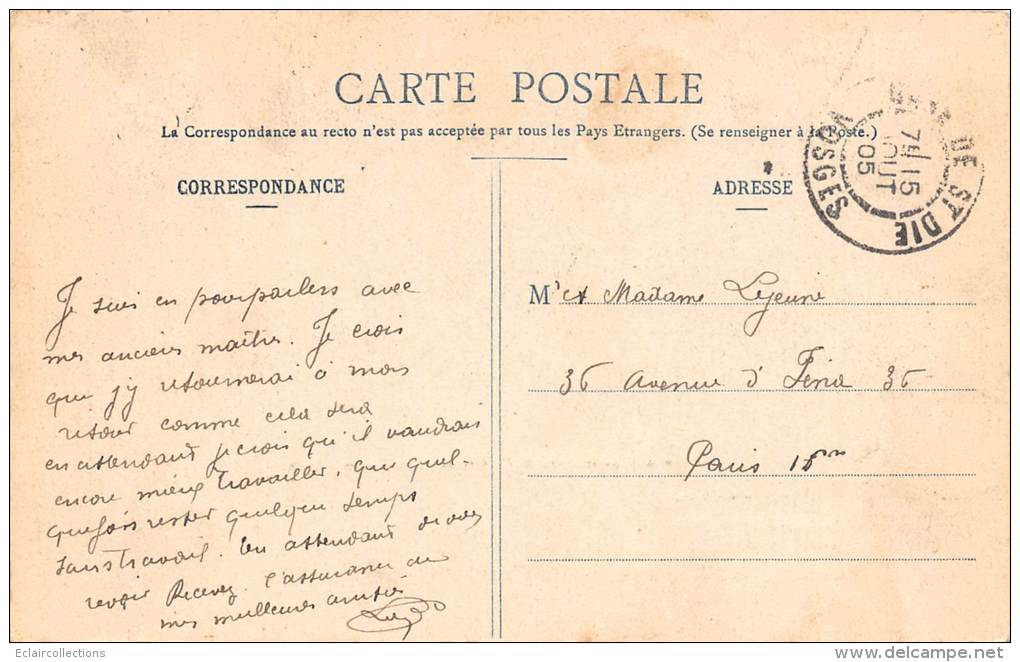 CARTE POSTALE
La Correspondance au recto n'est pas acceptée par tous les Pays Etrangers. (Se renseigner à la Poste.)
CORRESPONDANCE
ADRESSE
DE ST DIE
VOSGES
15
AOUT
05
Je suis en pourparlers avec
mes anciens maîtres. Je crois
que j'y retournerai à mon
retour comme cela sera
en attendant je crois qu'il vaudrais
encore mieux travailler, que quel-
quefois rester quelque temps
sans travail. En attendant de vous
revoir Recevez l'assurance de
mes meilleures amitiés
Mr et Madame Lejeune
36 Avenue d' Iéna 36
Paris 16me
Eclaircollections
delcampe.net